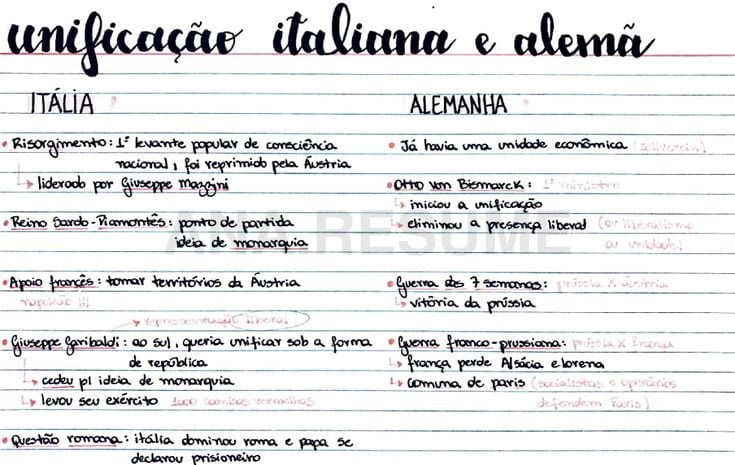 unificação italiana e alemã
ITÁLIA
• Risorgimento: 1º levante popular de consciência
nacional, foi reprimido pela Áustria
↳ liderado por Giuseppe Mazzini
• Reino Sardo-Piamontês: ponto de partida
ideia de monarquia
• Apoio francês: tomar territórios da Áustria
napoleão III
→ representação liberal
• Giuseppe Garibaldi: ao sul, queria unificar sob a forma
de república
↳ cedeu p/ ideia de monarquia
↳ levou seu exército 1000 camisas vermelhas
• Questão romana: itália dominou roma e papa se
declarou prisioneiro
ALEMANHA
• Já havia uma unidade econômica (zollverein)
• Otto von Bismarck: 1º ministro
↳ iniciou a unificação
↳ eliminou a presença liberal (ou liberalismo
ou unidade)
• Guerra das 7 semanas: prússia x áustria
↳ vitória da prússia
• Guerra franco-prussiana: prússia x frança
↳ frança perde Alsácia e lorena
↳ comuna de paris (socialistas e operários
defendem Paris)
ANA.RESUME